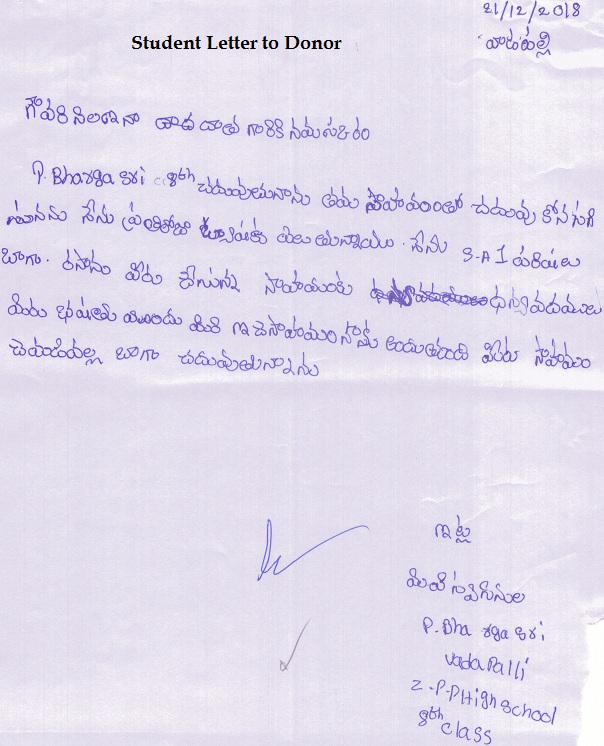 21/12/2018
వాడపల్లి
Student Letter to Donor
గౌవరనిలఅనా దాద దాతు గారికి నమసకరం
P. Bhargasri 8th చదువుతునాను తమ సాహాయంంతో చదువు కోనసగి
నేను ప్రంతిరోజు తెలుతున్నాయి. నేను S-A 1 పరిక్షలు
బాగా. రసాను మీరు చేసున్న సాహాయంకు ధన్యవదములు
మీరు భషతు యిందు మరి ఇచెసాహాయం నాకు అందుతుంది మీరు సాహాయం
చెయడంవల్ల బాగా చదువుతున్నాను
ఇట్ల
P. Bhargasri
vadapalli
Z-P-P High school
8th class